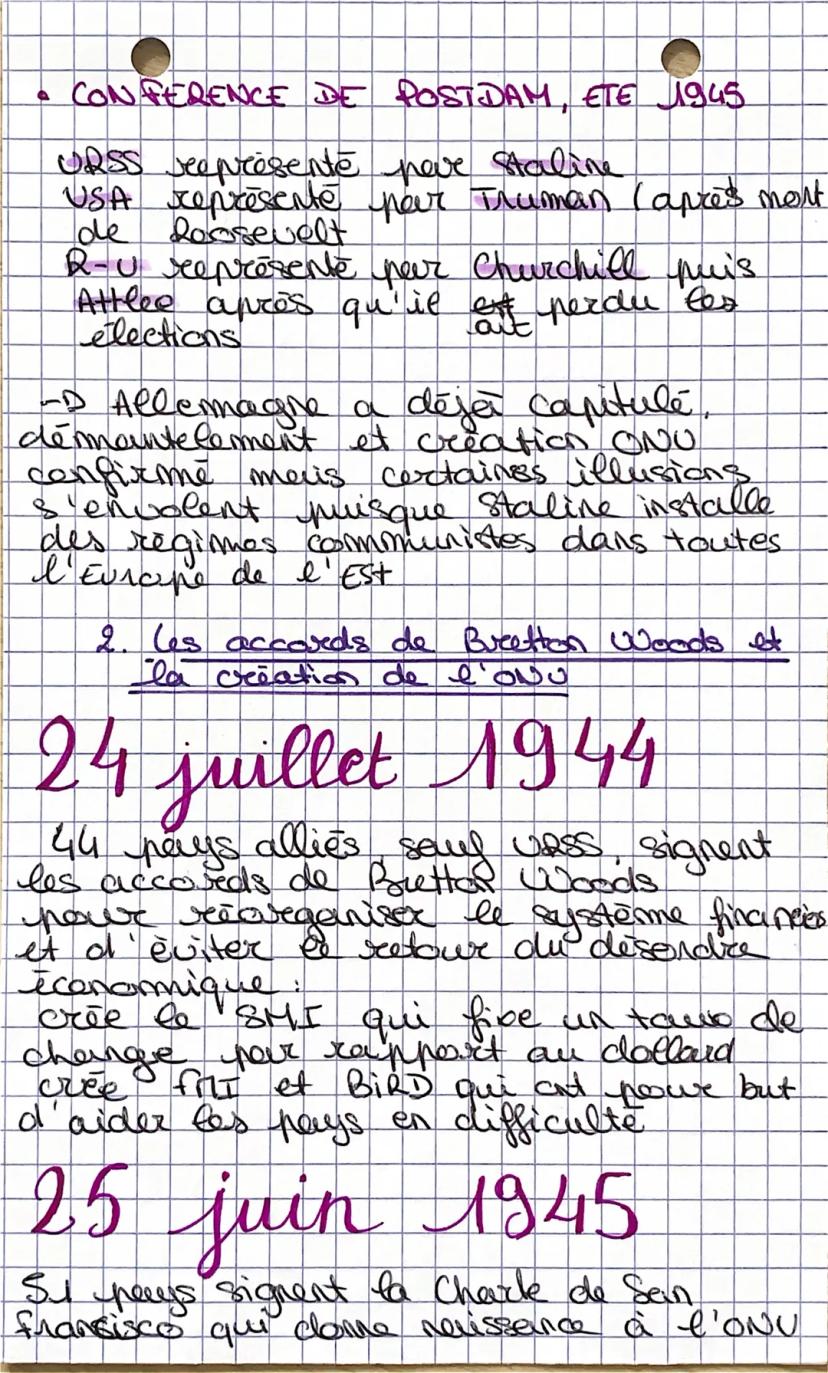 • CONFERENCE DE POSTDAM, ETE 1945
URSS représenté par Staline
USA représenté par Truman (après mort
de Roosevelt
R-U représenté par Churchill puis
Attlee après qu'il ait perdu les
élections
-D Allemagne a déjà capitulé,
démantelement et création ONU
confirmé mais certaines illusions
s'envolent puisque Staline installe
des régimes communistes dans toutes
l'Europe de l'Est
2. les accords de Bretton Woods et
la création de l'ONU
24 juillet 1944
44 pays alliés, sauf URSS, signent
les accords de Bretton Woods
pour réorganiser le système financier
et d'éviter le retour du désordre
économique :
crée le SMI qui fixe un taux de
change par rapport au dollard
crée FMI et BIRD qui ont pour but
d'aider les pays en difficulté
25 juin 1945
51 pays signent la Charte de San
Francisco qui donne naissance à l'ONU